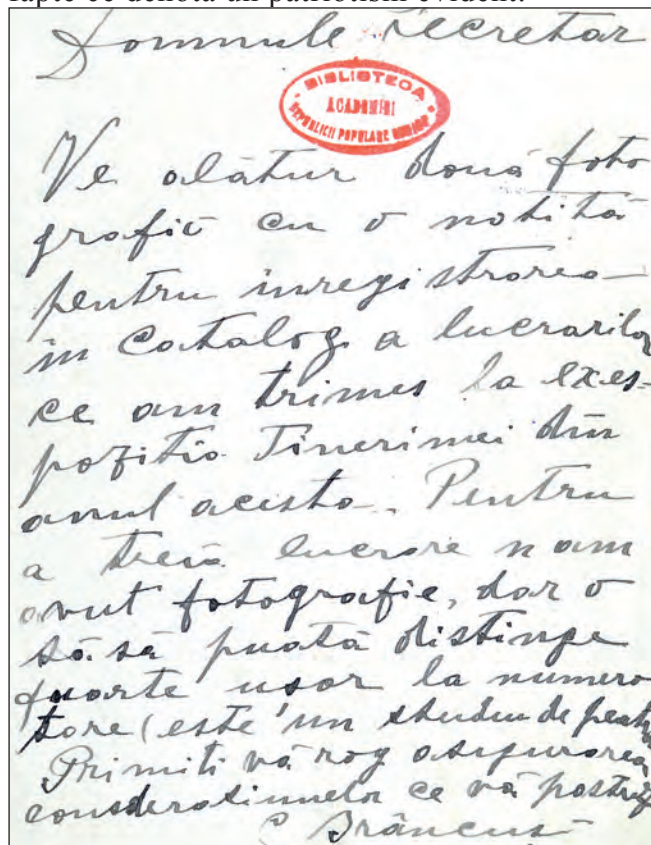 fapte ce denotă un patriotism evident.
Domnule Secretar
BIBLIOTECA
ACADEMIEI
REPUBLICII POPULARE ROMÎNE
Ve alătur două foto
grafii cu o notită
pentru inregistrarea
in Catalog a lucrarilor
ce am trimes la exes-
pozitia Tinerimei din
anul acesta. Pentru
a treia lucrare nam
avut fotografie, dar o
să să puată distinge
foarte usor la numero
tare (este un studiu de peatră
Primiti vă rog asigurarea
consideratiunelor ce vă pastrez
C Brâncusi